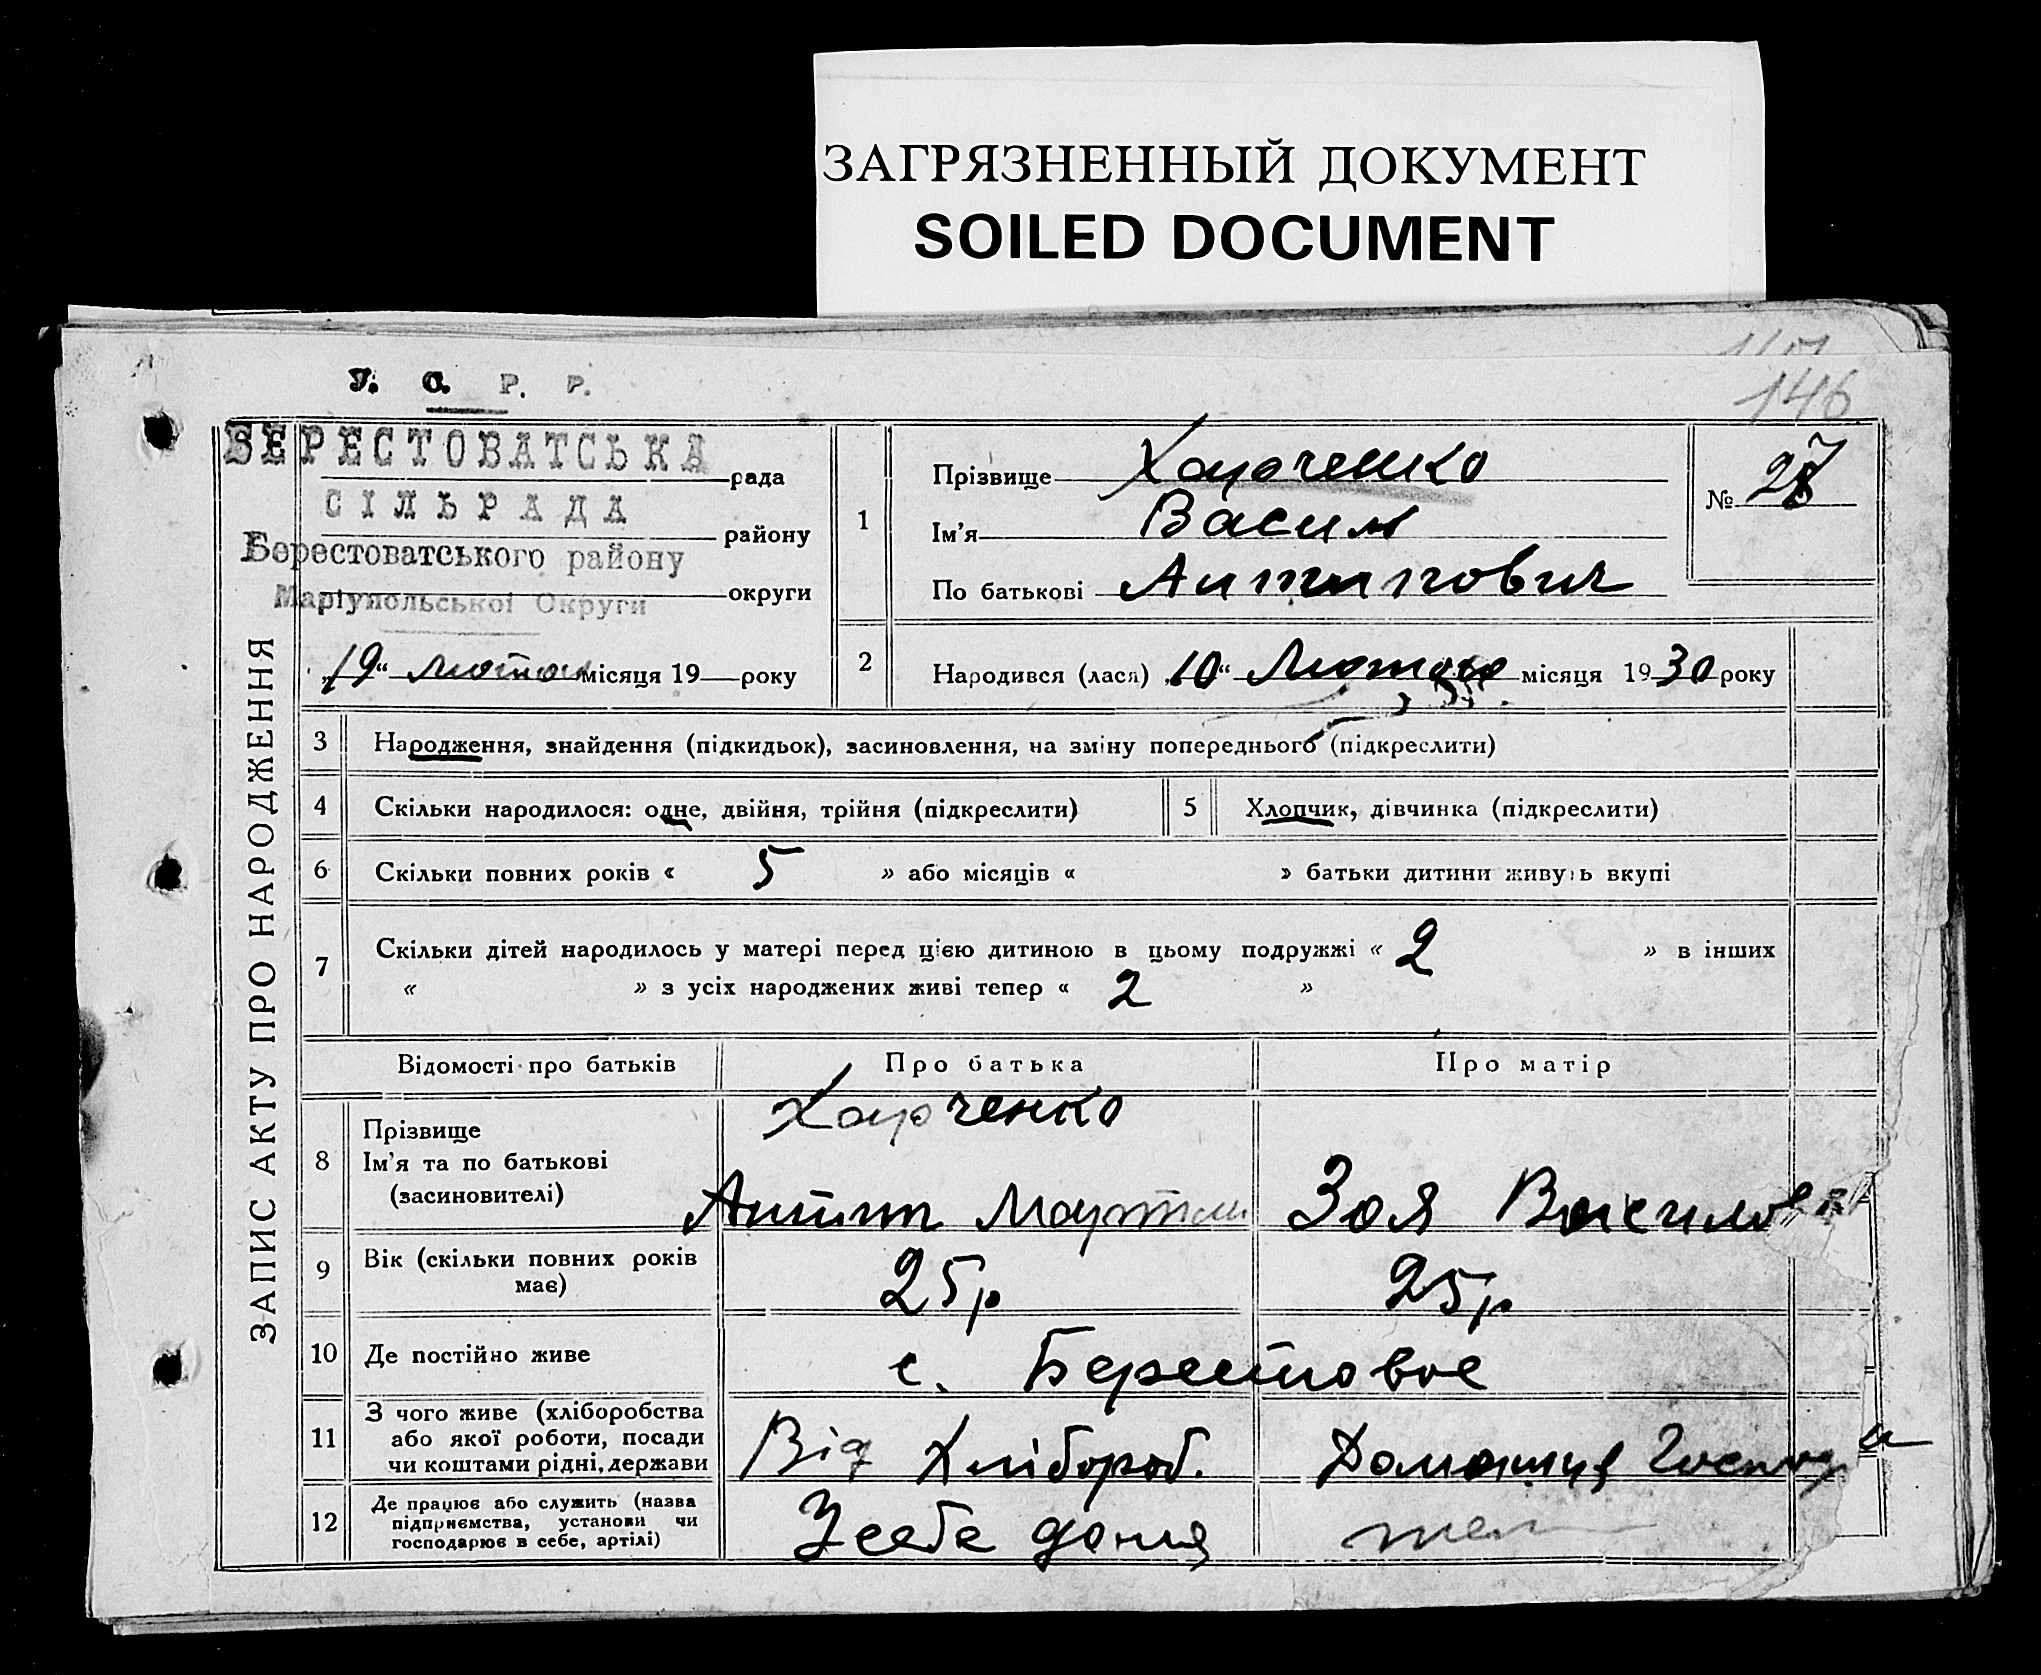 ЗАГРЯЗНЕННЫЙ ДОКУМЕНТ
SOILED DOCUMENT
146
У. С. Р. Р.
БЕРЕСТОВАТСЬКА рада
СІЛЬРАДА району
Берестоватського району
округи
Маріупольської Округи
„19“ лютого місяця 19 року
ЗАПИС АКТУ ПРО НАРОДЖЕННЯ
1 Прізвище Харченко
Ім'я Васил
По батькові Антипович
№ 27
2 Народився (лася) „10“ Лютого місяця 1930 року
3 Народження, знайдення (підкидьок), засиновлення, на зміну попереднього (підкреслити)
4 Скільки народилося: одне, двійня, трійня (підкреслити)
5 Хлопчик, дівчинка (підкреслити)
6 Скільки повних років « 5 » або місяців « » батьки дитини живуть вкупі
7 Скільки дітей народилось у матері перед цією дитиною в цьому подружжі « 2 » в інших
« » з усіх народжених живі тепер « 2 »
Відомості про батьків Про батька Про матір
8 Прізвище
Ім'я та по батькові
(засиновителі)
Харченко
Антип Март
Зоя Василов
9 Вік (скільки повних років
має)
25р 25р
10 Де постійно живе с. Берестовое
11 З чого живе (хліборобства
або якої роботи, посади
чи коштами рідні, держави
Від Хлібороб. Домашня Господ
12 Де працює або служить (назва
підприємства, установи чи
господарює в себе, артілі)
У себе дома